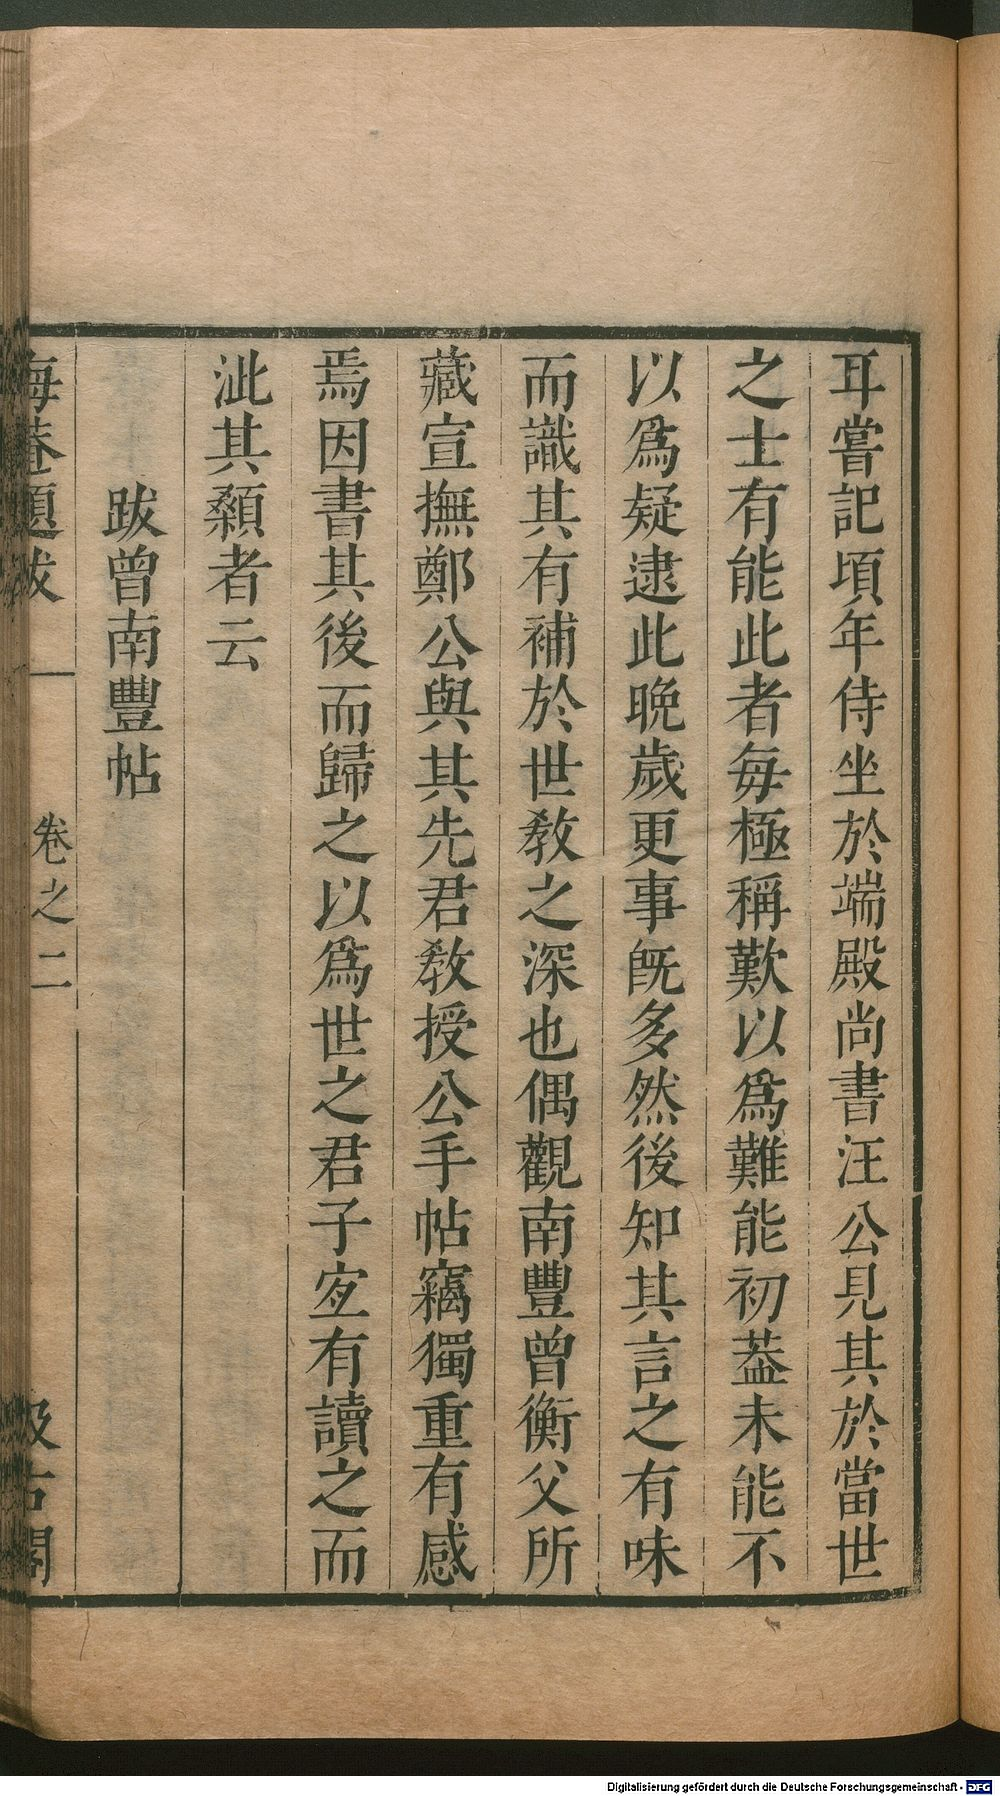 耳嘗記頃年侍坐於端殿尚書汪公見其於當世
之士有能此者每極稱歎以爲難能初葢未能不
以爲疑逮此晩歲更事旣多然後知其言之有味
而識其有補於世敎之深也偶觀南豐曾衡父所
藏宣撫鄭公與其先君敎授公手帖竊獨重有感
焉因書其後而歸之以爲世之君子宐有讀之而
泚其顙者云
跋曾南豐帖
海菴題跋 卷之二 汲古閣
Digitalisierung gefördert durch die Deutsche Forschungsgemeinschaft - DFG